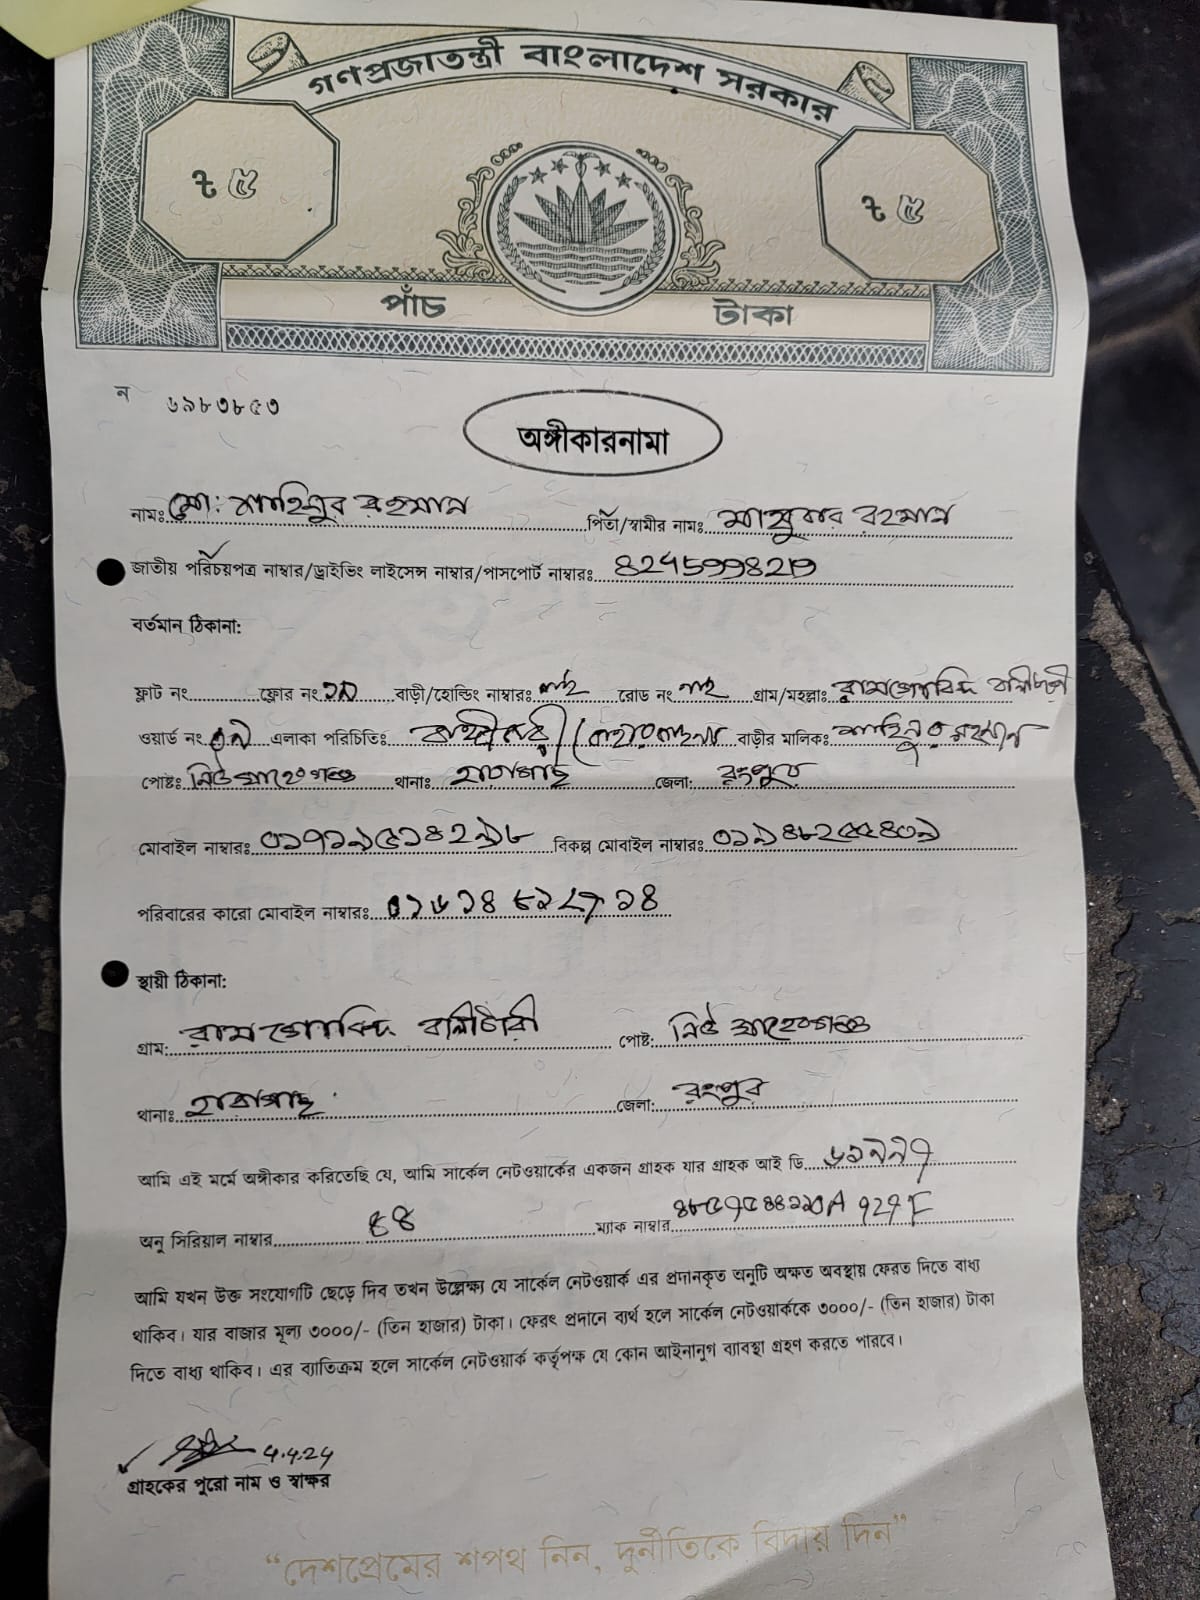 গণপ্রজাতন্ত্রী বাংলাদেশ সরকার
৳ ৫ ৳ ৫
পাঁচ টাকা
ন ৬৯৮৩৮৫৩
অঙ্গীকারনামা
নামঃ মো: শাহিনুর রহমান পিতা/স্বামীর নামঃ রহমান
জাতীয় পরিচয়পত্র নাম্বার/ড্রাইভিং লাইসেন্স নাম্বার/পাসপোর্ট নাম্বারঃ
বর্তমান ঠিকানা:
ফ্লাট নং ফ্লোর নং বাড়ী/হোল্ডিং নাম্বারঃ নাই রোড নং নাই গ্রাম/মহল্লাঃ রামগোবিন্দ বালাটারী
ওয়ার্ড নং এলাকা পরিচিতিঃ বাড়ীর মালিকঃ শাহিনুর রহমান
পোষ্টঃ নিউ সাহেবগঞ্জ থানাঃ হারাগাছ জেলা: রংপুর
মোবাইল নাম্বারঃ বিকল্প মোবাইল নাম্বারঃ
পরিবারের কারো মোবাইল নাম্বারঃ
স্থায়ী ঠিকানা:
গ্রাম: রামগোবিন্দ বালাটারী পোষ্ট: নিউ সাহেবগঞ্জ
থানাঃ হারাগাছ জেলা: রংপুর
আমি এই মর্মে অঙ্গীকার করিতেছি যে, আমি সার্কেল নেটওয়ার্কের একজন গ্রাহক যার গ্রাহক আই ডি
অনু সিরিয়াল নাম্বার ৪৪ ম্যাক নাম্বার
আমি যখন উক্ত সংযোগটি ছেড়ে দিব তখন উল্লেক্ষ্য যে সার্কেল নেটওয়ার্ক এর প্রদানকৃত অনুটি অক্ষত অবস্থায় ফেরত দিতে বাধ্য
থাকিব। যার বাজার মূল্য ৩০০০/- (তিন হাজার) টাকা। ফেরৎ প্রদানে ব্যর্থ হলে সার্কেল নেটওয়ার্ককে ৩০০০/- (তিন হাজার) টাকা
দিতে বাধ্য থাকিব। এর ব্যাতিক্রম হলে সার্কেল নেটওয়ার্ক কর্তৃপক্ষ যে কোন আইনানুগ ব্যাবস্থা গ্রহণ করতে পারবে।
4.4.24
গ্রাহকের পুরো নাম ও স্বাক্ষর
“দেশপ্রেমের শপথ নিন, দুর্নীতিকে বিদায় দিন”